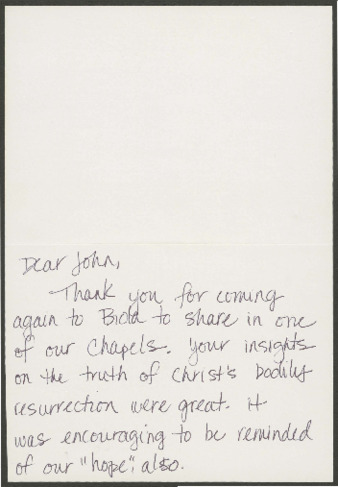 Dear John,
Thank you for coming
again to Biola to share in one
of our Chapels. Your insights
on the truth of Christ's bodily
resurrection were great. It
was encouraging to be reminded
of our "hope", also.